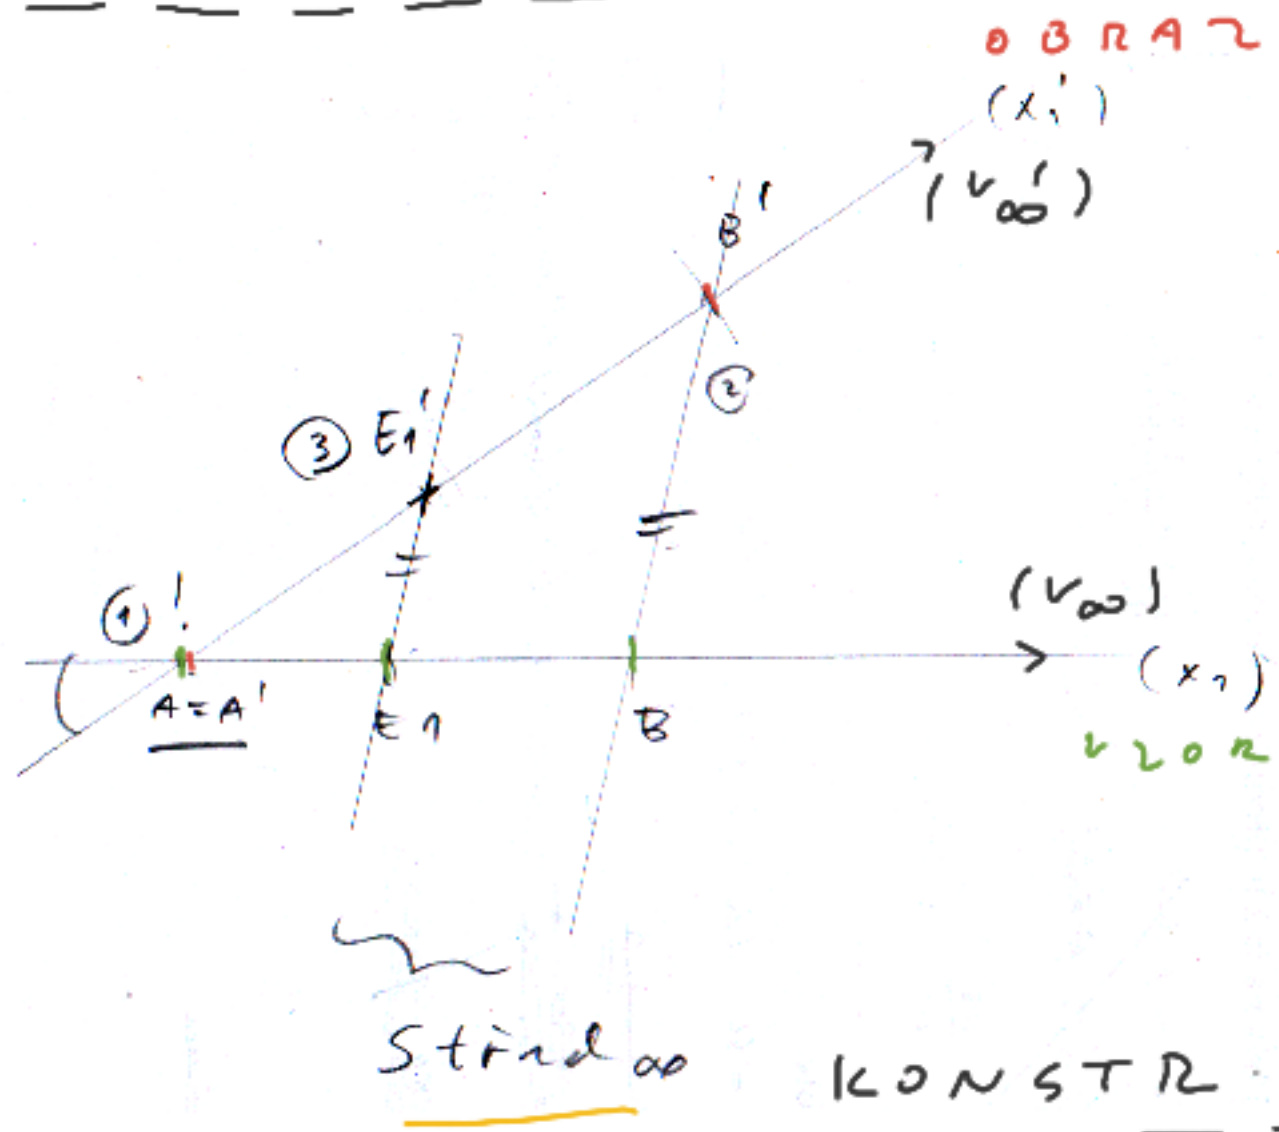 OBRAZ
(x₁')
(V∞')
B'
②
③ E₁'
① !
(V∞)
(x₁)
A=A'
E1
B
VZOR
Střed ∞
KONSTR.